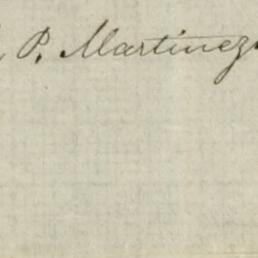 P. Martinez